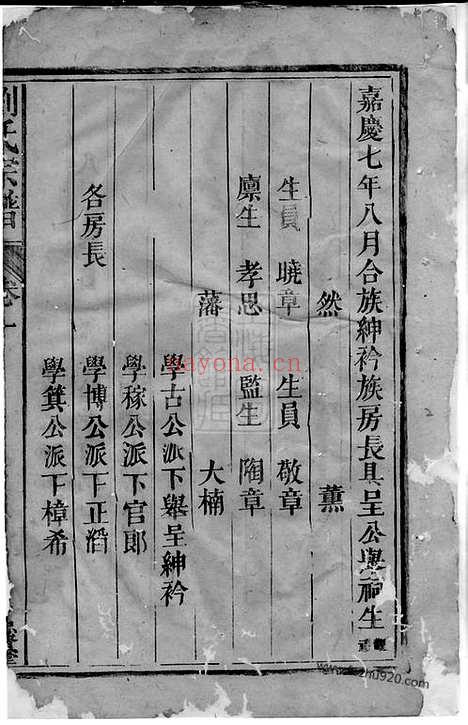 嘉慶七年八月合族紳衿族房長具呈公舉祠生
然 薰
生員 曉章 生員 敬章
廩生 孝思 監生 陶章
藩 大楠
學古公派下舉呈紳衿
學稼公派下官郎
各房長 學博公派下正滔
學箕公派下樟希
劉氏宗譜 卷一
nayona.cn